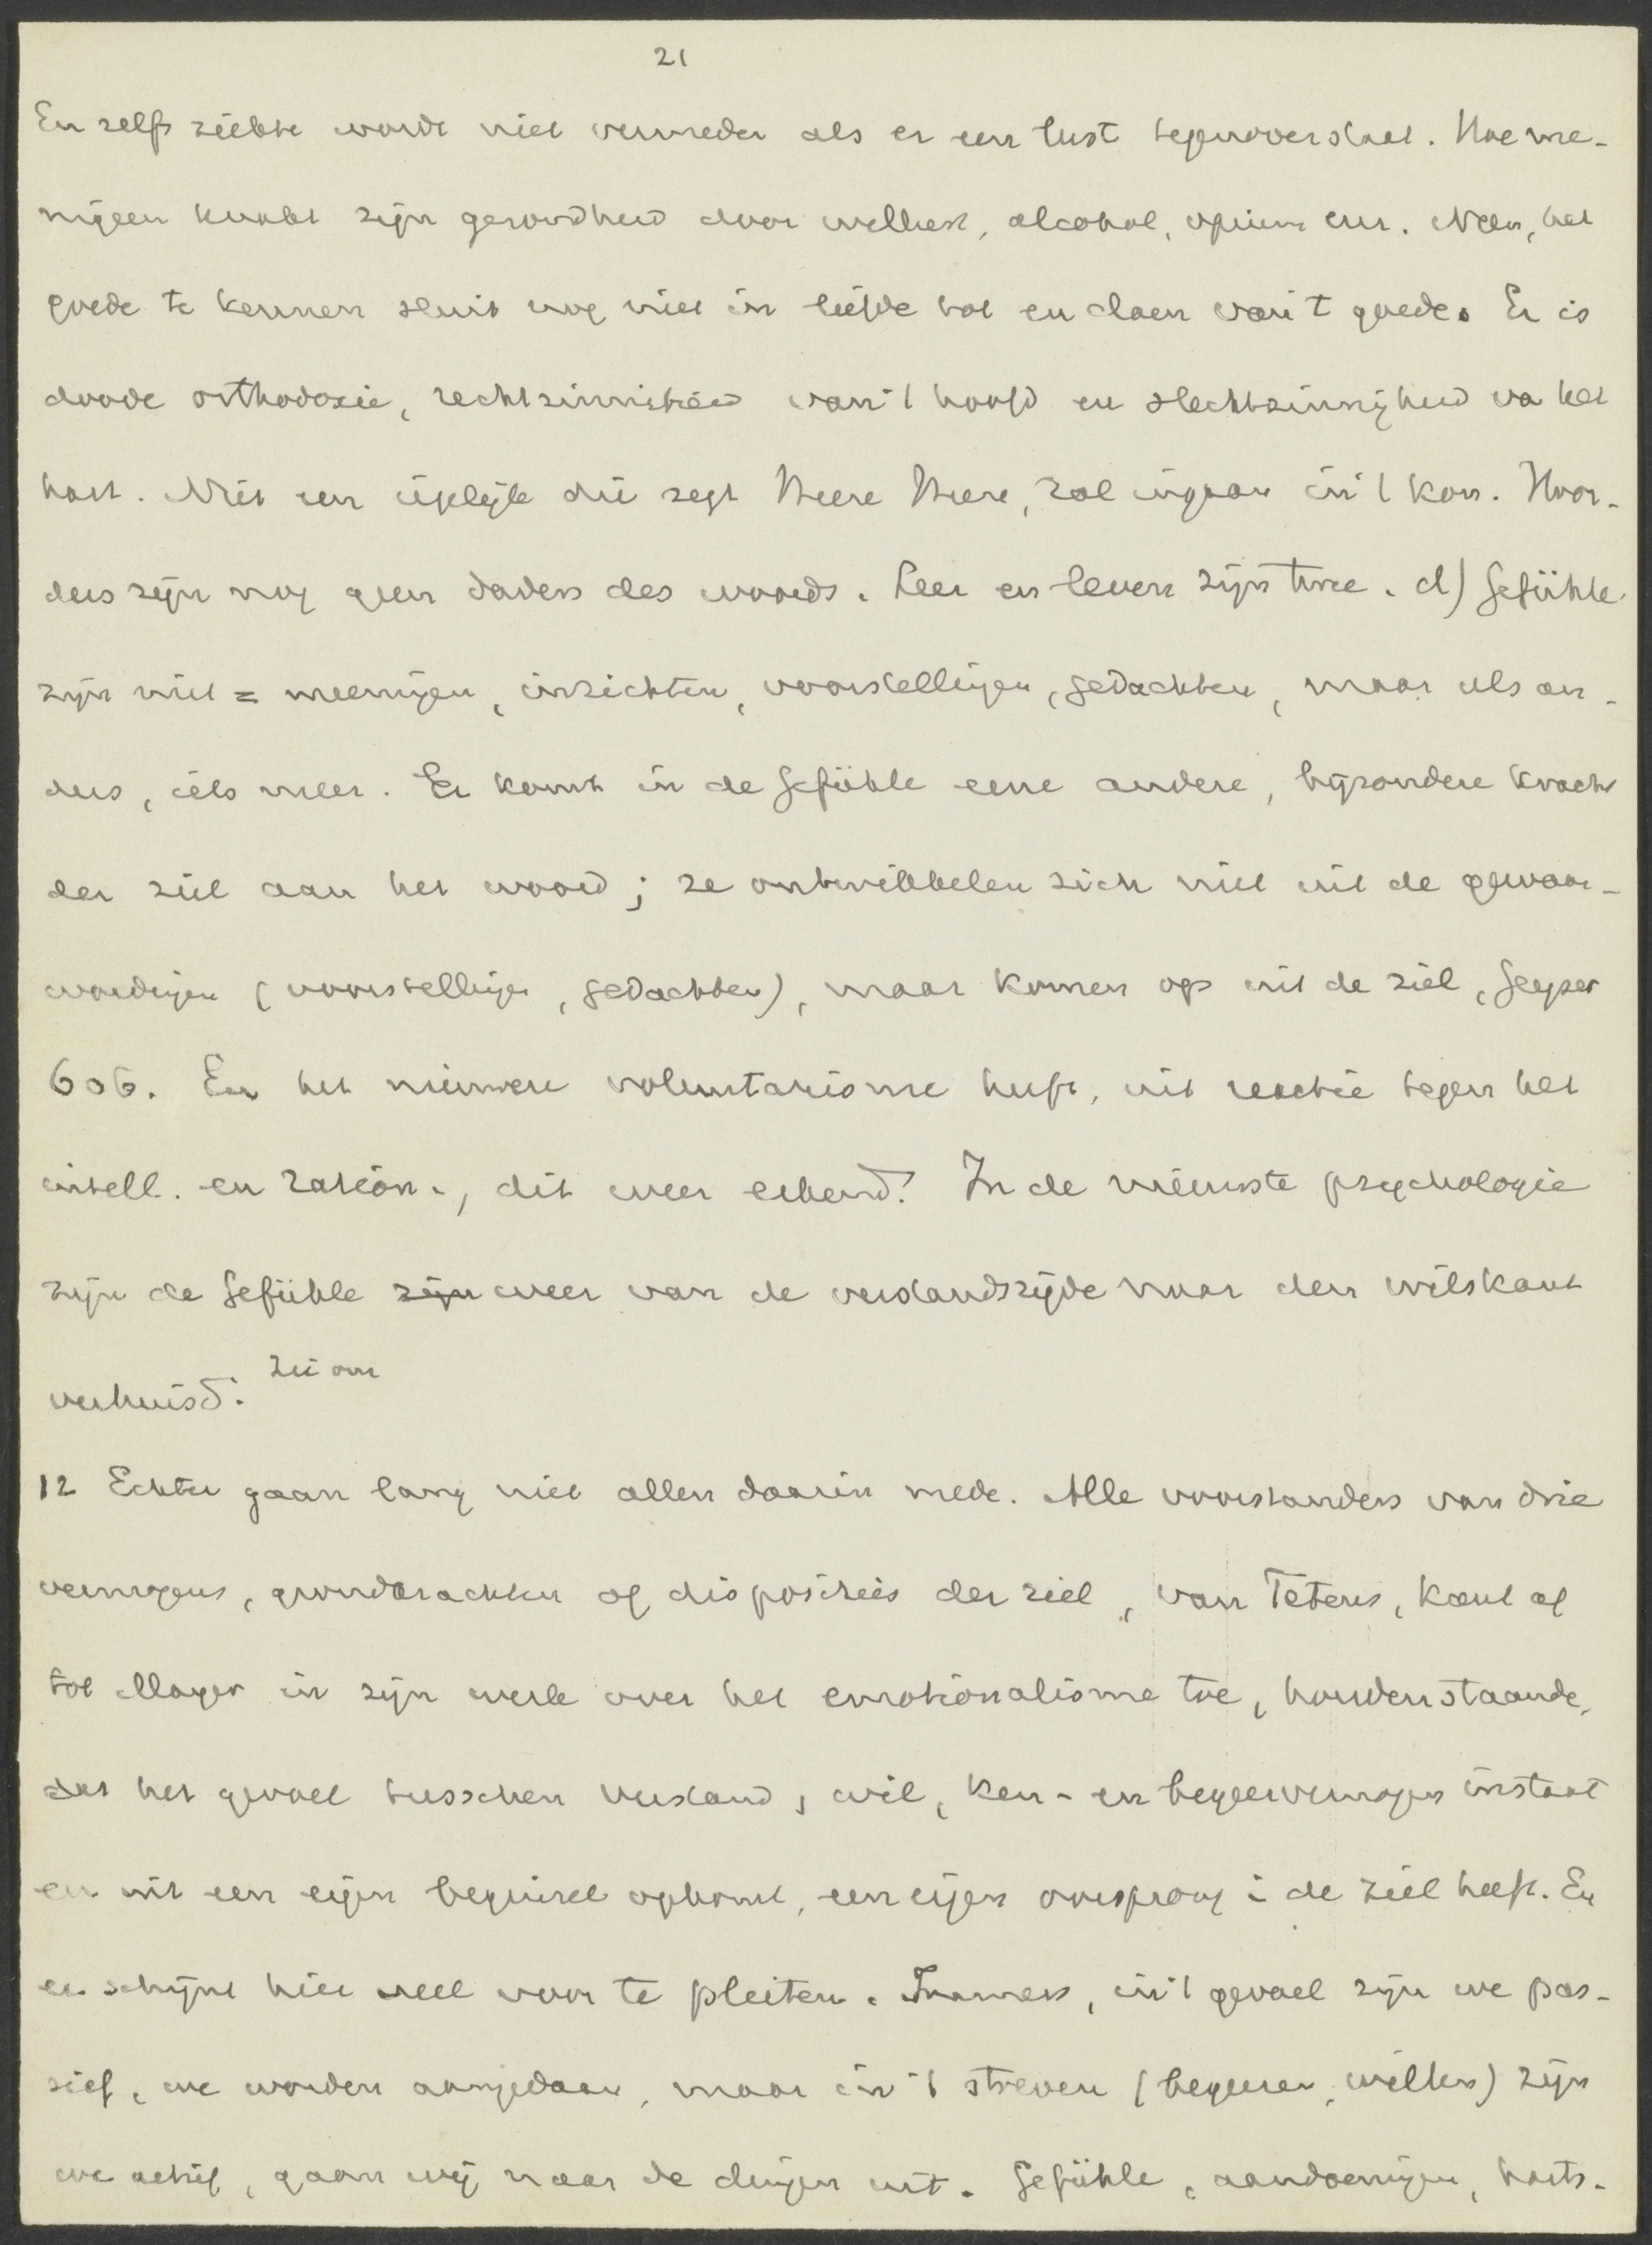 21
En zelfs ziekte wordt niet vermeden als er een lust tegenoverstaat. Hoe me-
nigeen knakt zijn gezondheid door wellust, alcohol, opium enz. Neen, het
goede te kennen sluit nog niet in liefde tot en doen van 't goede. Er is
doode orthodoxie, rechtzinnigheid van 't hoofd en slechtzinnigheid va het
hart. Niet een iegelijk die zegt Heere Heere, zal ingaan in 't kon. Hoor-
ders zijn nog geen daders des woords. Leer en leven zijn twee. d) Gefühle
zijn niet = meeningen, inzichten, voorstellingen, gedachten, maar iets an-
ders, iets meer. Er komt in de Gefühle eene andere, bijzondere kracht
der ziel aan het woord; ze ontwikkelen zich niet uit de gewaar-
wordingen (voorstellingen, gedachten), maar komen op uit de ziel, Geyser
606. En het nieuwere voluntarisme heeft, uit reactie tegen het
intell. en ration., dit weer erkend. In de nieuwste psychologie
zijn de Gefühle zijn weer van de verstandszijde naar den wilskant
verhuisd. Zie om
12 Echter gaan lang niet allen daarin mede. Alle voorstanders van drie
vermogens, grondkrachten of disposities der ziel, van Tetens, Kant af
tot Mayer in zijn werk over het emotionalisme toe, houden staande,
dat het gevoel tusschen verstand, wil, ken- en begeervermogen instaat
en uit een eigen beginsel opkomt, een eigen oorsprong i de ziel heeft. En
er schijnt hier veel voor te pleiten. Immers, in 't gevoel zijn we pas-
sief, we worden aangedaan, maar in 't streven (begeeren, willen) zijn
we actief, gaan wij naar de dingen uit. Gefühle, aandoeningen, harts-